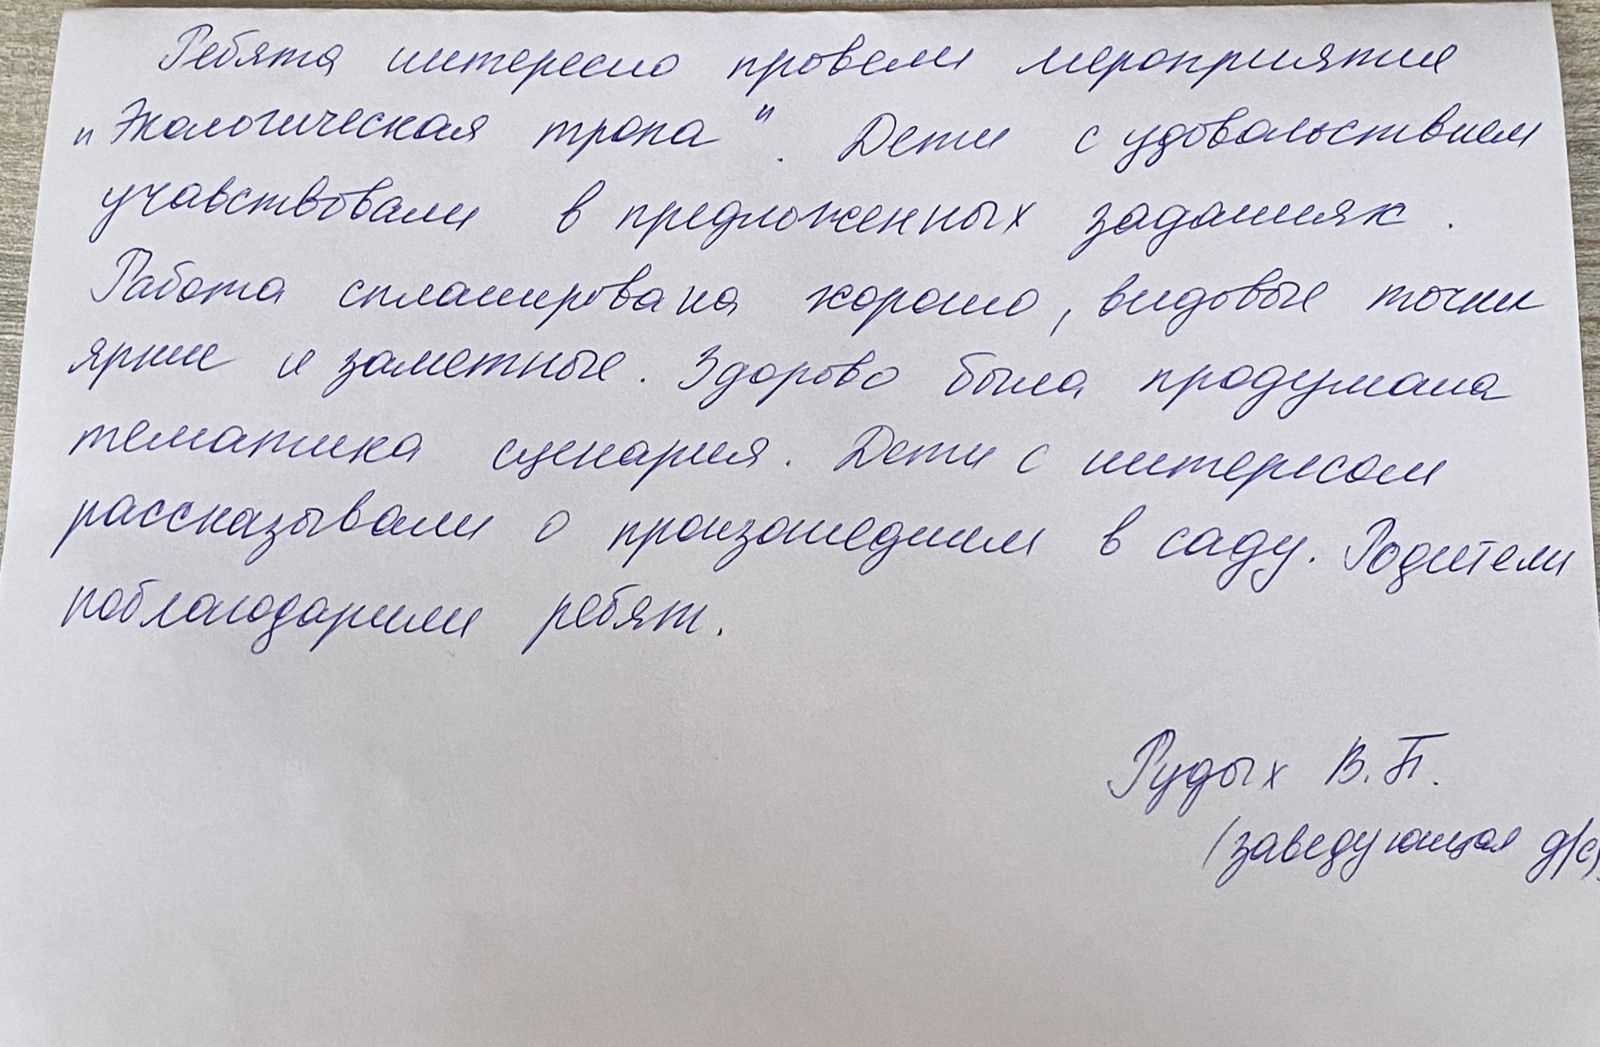 Ребята интересно провели мероприятие
"Экологическая тропа". Дети с удовольствием
учавствовали в предложенных заданиях.
Работа спланирована хорошо, видовые точки
яркие и заметные. Здорово была продумана
тематика сценария. Дети с интересом
рассказывали о произошедшем в саду. Родители
поблагодарили ребят.
Рудых В.П.
(заведующая д/с)